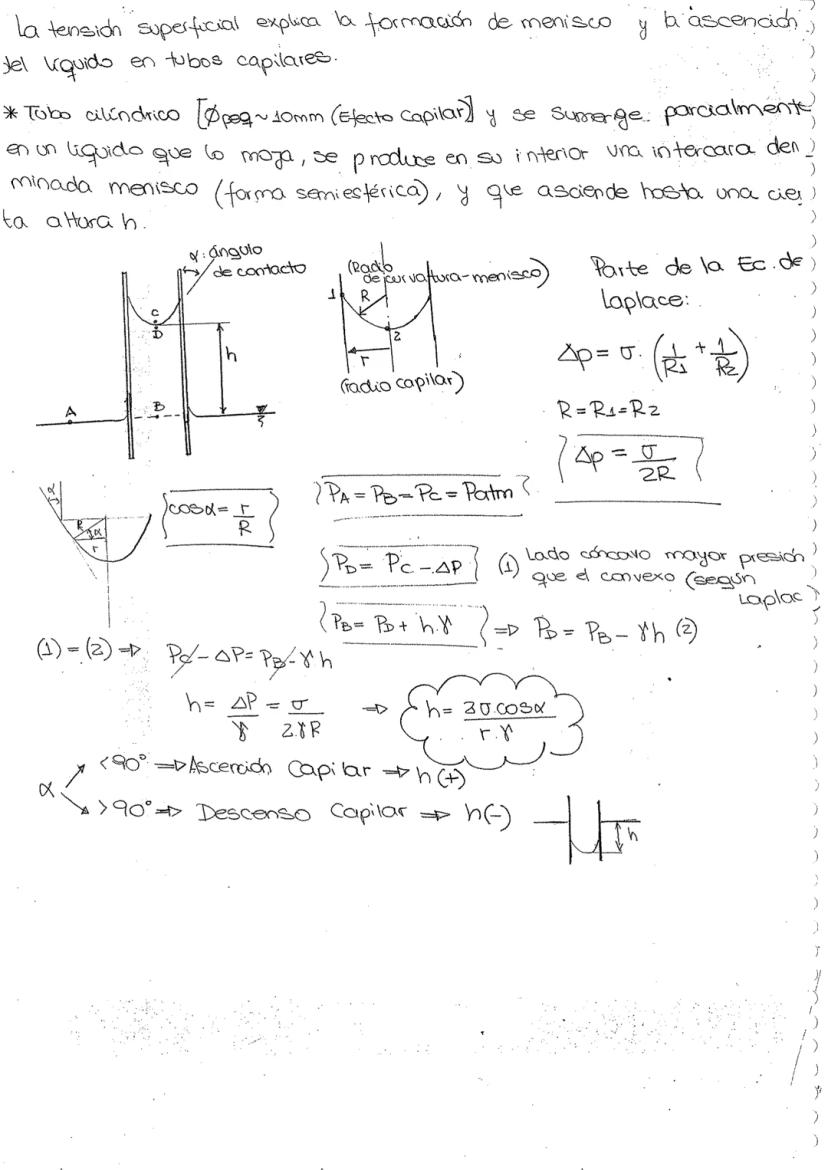 La tensión superficial explica la formación de menisco y la ascención
del líquido en tubos capilares.
* Tubo cilíndrico [Øpeq ~ 10mm (Efecto Capilar)] y se sumerge parcialmente
en un líquido que lo moja, se produce en su interior una intercara den_
minada menisco (forma semiesférica), y que asciende hasta una cier
ta altura h.
α: ángulo
de contacto
C
D
h
A
B
(Radio
de curvatura-menisco)
1
R
2
r
(radio capilar)
Parte de la Ec. de
Laplace:
Δp = σ. (1/R1 + 1/R2)
R = R1 = R2
Δp = σ/2R
α
R
α
r
cosα = r/R
PA = PB = PC = Patm
PD = PC - ΔP (1) Lado cóncavo mayor presión
que el convexo (según
Laplac)
PB = PD + h.γ => PD = PB - γh (2)
(1) = (2) => PC - ΔP = PB - γh
h = ΔP/γ = σ/2.γR => h = 3σ.cosα/r.γ
α
<90° => Ascención Capilar => h(+)
>90° => Descenso Capilar => h(-)
h